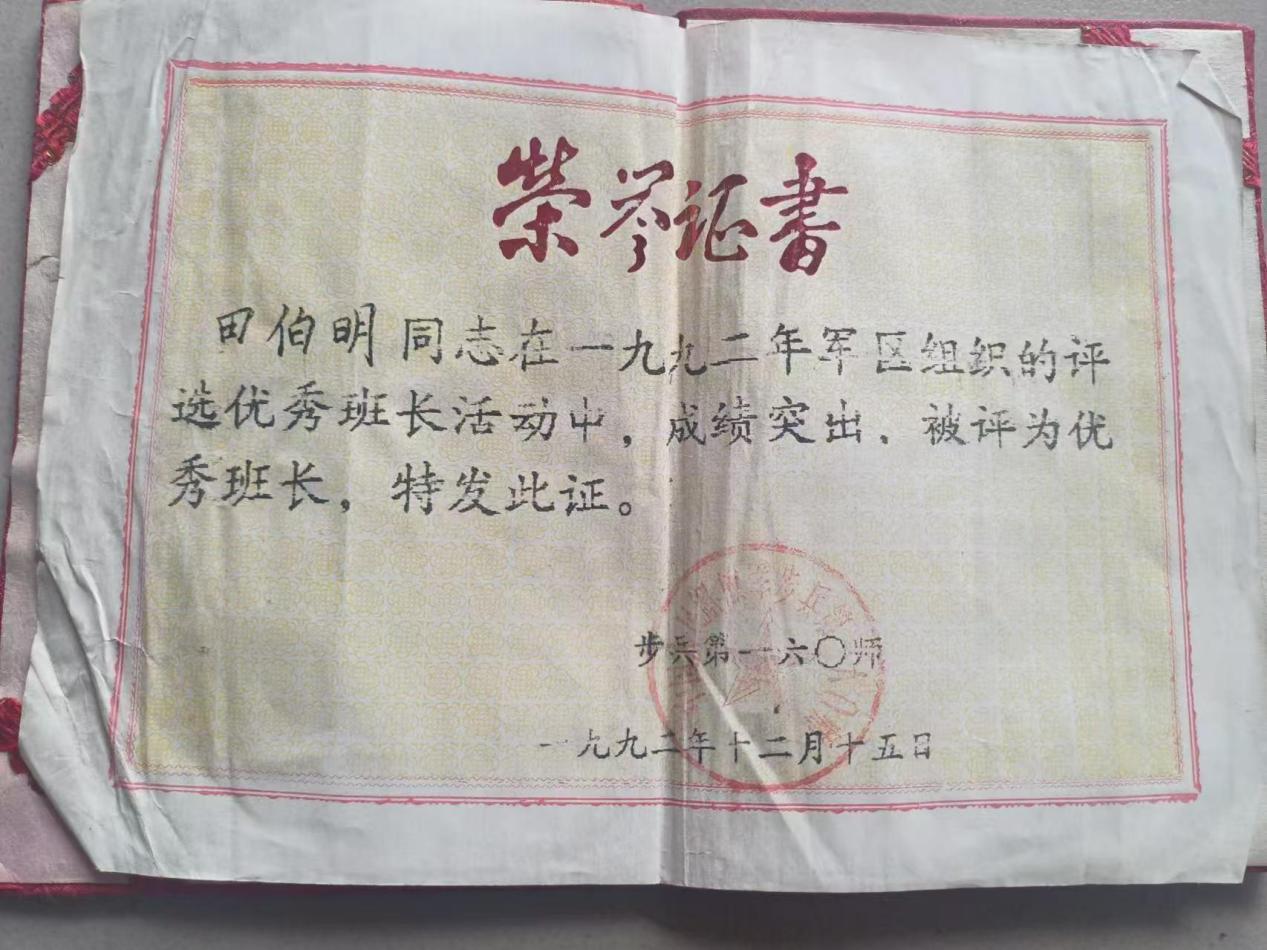 荣誉证书
田伯明同志在一九九二年军区组织的评
选优秀班长活动中,成绩突出,被评为优
秀班长,特发此证。
步兵第一六〇师
一九九二年十二月十五日